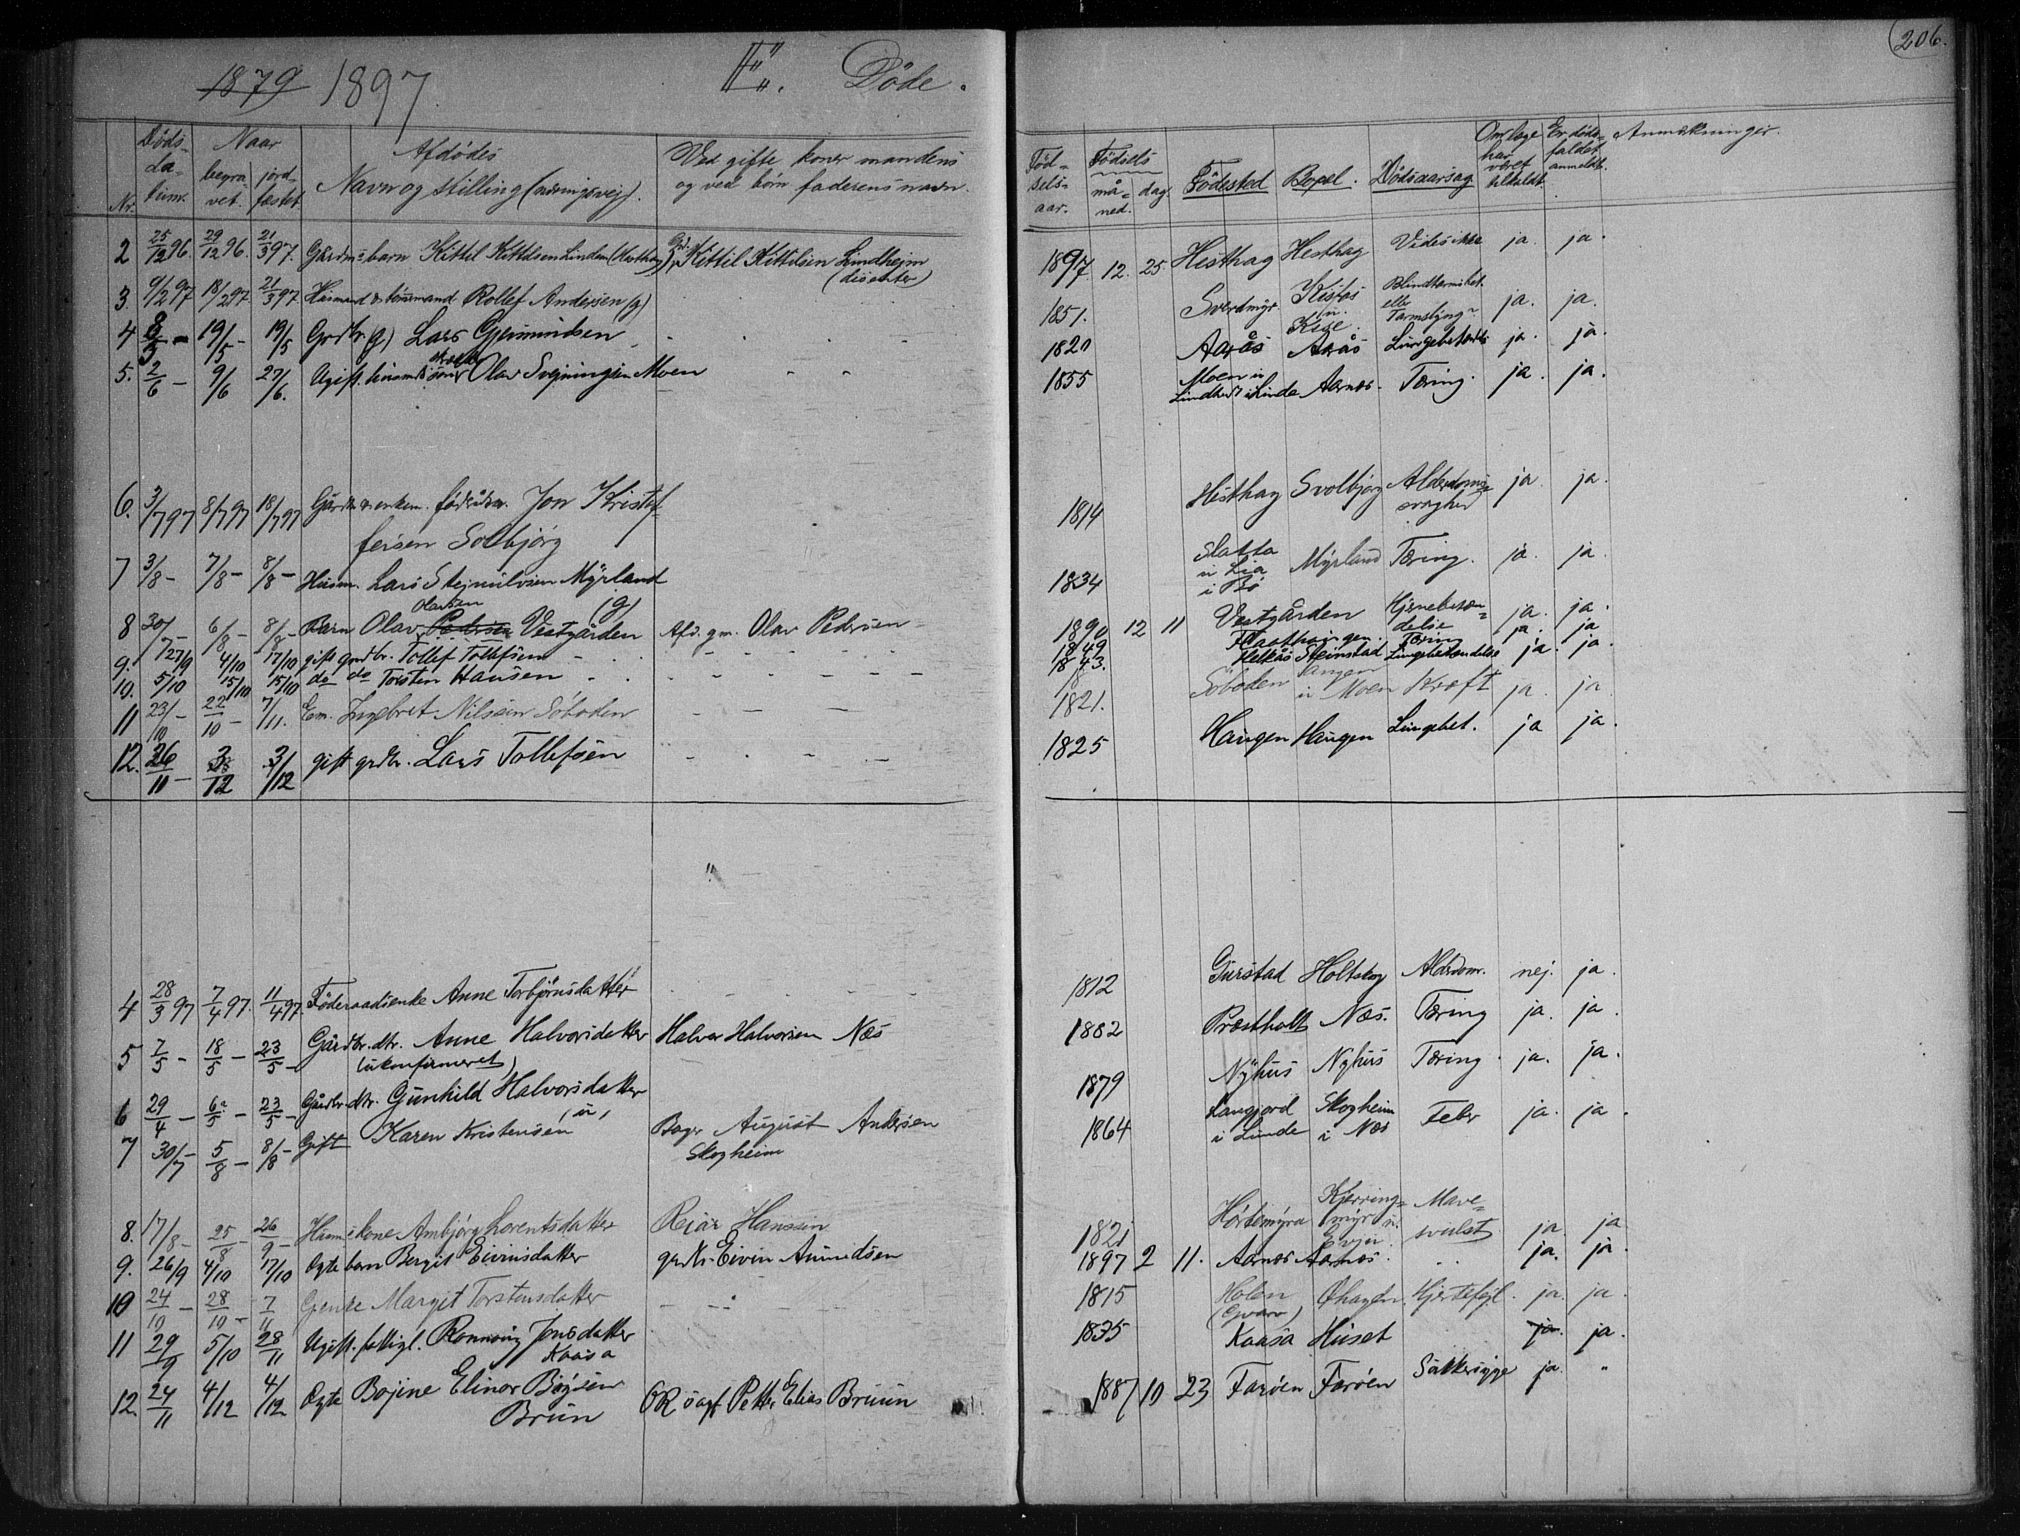 206.
1879 1897
F. Døde.
Nr. Døds-datum. Naar begravet. jordfæstet. Afdødes Navn og stilling (næringsvej). Ved gifte koner mandens og ved børn faderens navn. Fødselsaar. Fødsels måned. dag. Fødested Bopæl. Dødsaarsag Om læge har været tilkaldt Er dødsfaldet anmeldt. Anmærkninger.
2 25/12 96 29/12 96. 21/3 97. Gårdm. barn Kittel Kittilsen (Hesthag) Kittil Kittilsen Lindheim (disenter) 1897 12. 25 Hesthag Hesthag Vides ikke ja. ja.
3 9/2 97 18/2 97 21/3 97 Husmand Rollef Andersen (g) 1851. Sverdmyr Kise. Blindtarmsbet. eller Tarmslyng ja. ja.
4 8/3 - 19/5 - 19/5 Grdbr. (g) Lars Gjermundsen 1820 Aarås Aarås Lungebetændelse ja. ja.
5. 2/6 - 9/6 27/6. Ugift husm. søn Olav Svejningsen Moen 1855 Moen i Lunde Aarnes. Tæring. ja. ja.
6. 3/7 97 8/7 97 18/7 97 Gårdm. enkem. føderådsm. Jon Kristof-
fersen Solbjørg 1814 Hesthag Svolbjørg Alderdoms-svaghed ja. ja.
7 3/8 - 7/8 - 8/8 - Husm. Lars Stejnulvsen Myrland (g) 1834 Slatta u Lia i Bø Myrland Tæring. ja. ja.
8 30/7 - 6/8 - 8/8 - Barn Olav Pedersen Olavsen Vestgården Afd. gm. Olav Pedersen 1890 12 11 Vestgården Hjernebetændelse ja. ja.
9. 27/9 4/10 17/10 gift grdbr. Tollef Tollefsen 1849 Tæring ja. ja
10. 5/10 15/10 15/10 do do Torsten Hansen 1843. Helkås Steinstad Lungebetændelse ja. ja.
11 23/10 - 22/10 - 7/11. Em. Ingebret Nilsen Søboden 1821. Søboden u Moen Kræft ja. ja.
12. 26/11 - 3/12 3/12 gift grdbr. Lars Tollefsen 1825 Haugen Haugen Lungebet. ja ja.
4 28/3 97 7/4 97. 11/4 97. Føderaadsenke Anne Torbjørnsdatter 1812 Gurstad Holtskog Alderdom. nej. ja.
5 7/5 - 18/5 - 23/5 - Gårdbr. dtr. Anne Halvorsdatter (ukonfirmeret) Halvor Halvorsen Næs 1882 Præstholt Næs. Tæring ja. ja.
6 29/4 - 6/5 - 23/5 - Gårdbr. dtr. Gunhild Halvorsdatter 1879 Nyhus Nyhus Tæring. ja. ja.
7 30/7 - 5/8 - 8/8 - Gift Karen Kristensen Bager August Andersen Skogheim 1864 Langjord i Lunde Skogheim i Næs Feber ja. ja.
8. 17/8 - 25/8 - 26/9 - Husm. kone Ambjørg Lorentsdatter Reiar Hansen 1821 Hørtemyra Kjerringmyr u. Evju. Mavesvulst ja. ja
9. 26/9 4/10 17/10 Ægte barn Bergit Eivinsdatter grdbr. Eivin Amundsen 1897 2 11. Aarnes Aarnes. . . ja. ja.
10 24/10 - 28/10 - 7/11 Genke Margit Torstensdatter 1815 Holen (Gvarv) Øhaugen. Hjertefejl. ja. ja.
11 29/9 5/10 28/11 Ugift. fattigl. Rønnoug Jonsdatter Kaasa 1835 Kaasa Huset ja. ja.
12. 24/11 4/12 4/12 Ægte Bojine Elinor Bøjsen Brun OR sagf. Petter Elias Bruun 1887 10 23 Farøen Farøen Sukkersyge ja. "